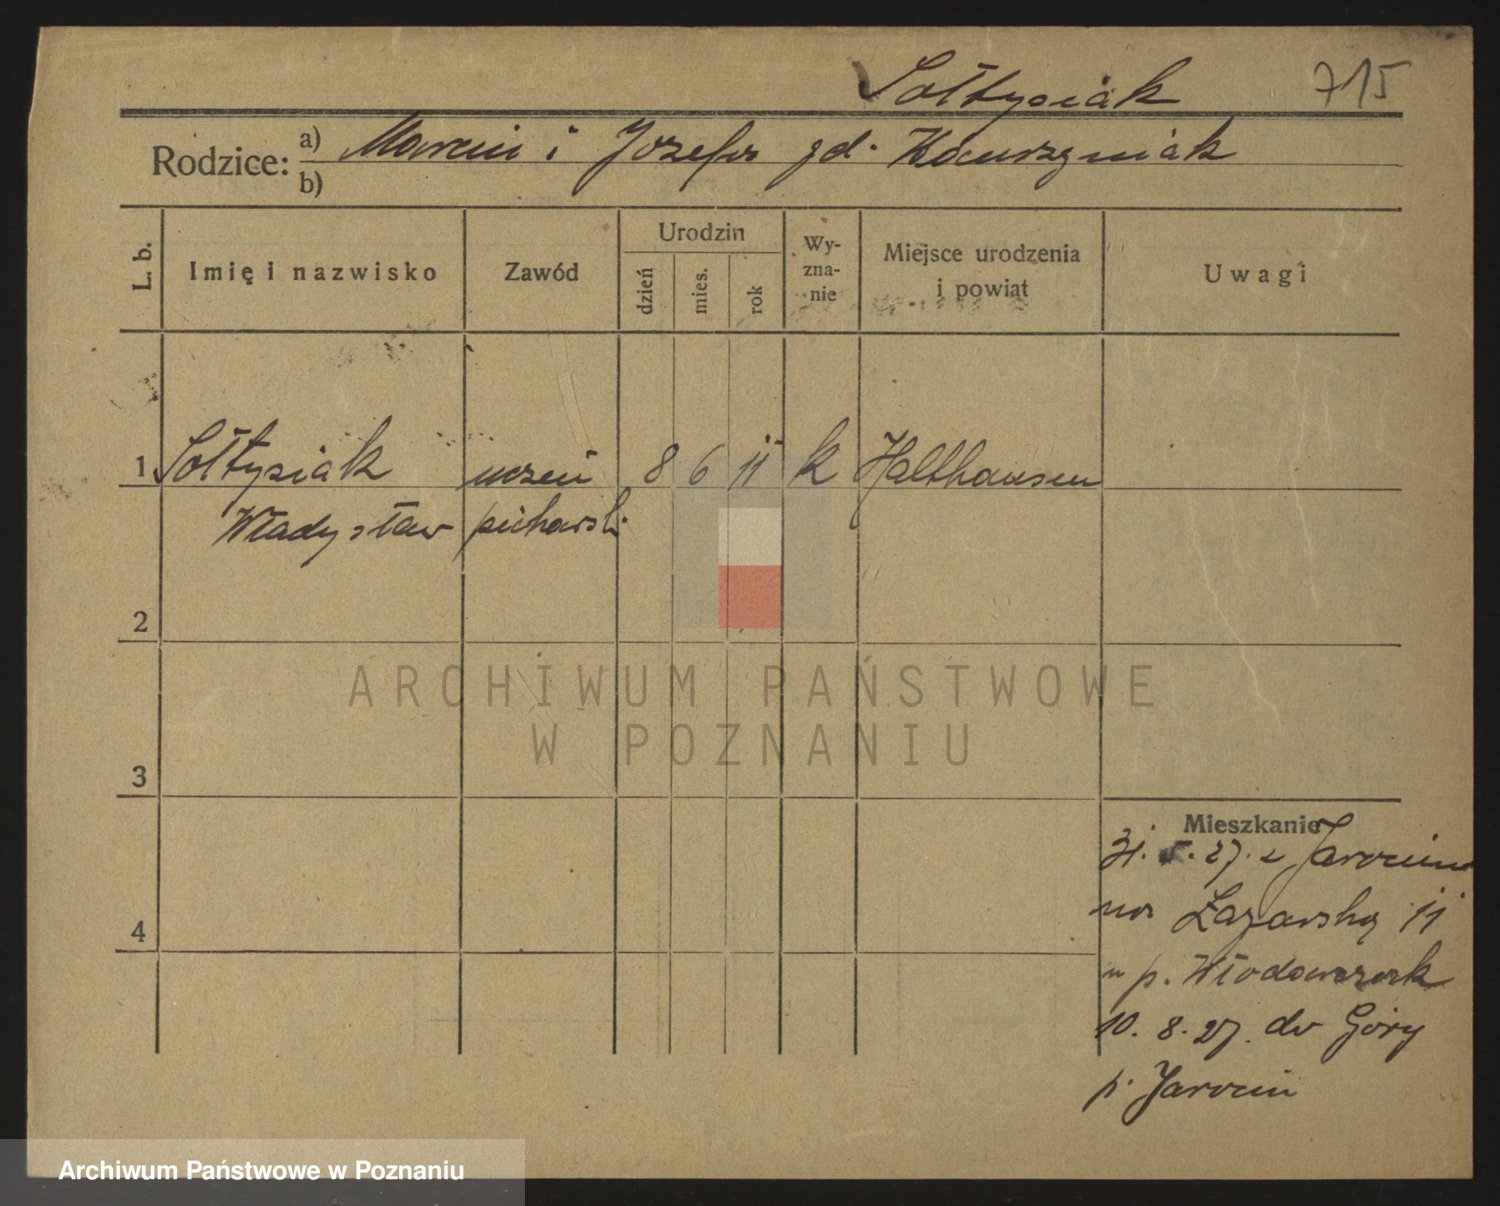 Sołtysiak 715
Rodzice: a) Marcin i Józefa zd. Kaczyzniak
b)
L. b. Imię i nazwisko Zawód Urodzin dzień mies. rok Wyznanie Miejsce urodzenia i powiat Uwagi
1 Sołtysiak uczeń 8 6 11 k Halthausen
Władysław piekarski
2
3
4
Mieszkanie
31. 5. 27. z Jarocina
na Łazarską 11
u p. Włodarczak
10. 8. 27. do Góry
p. Jarocin
ARCHIWUM PAŃSTWOWE
W POZNANIU
Archiwum Państwowe w Poznaniu